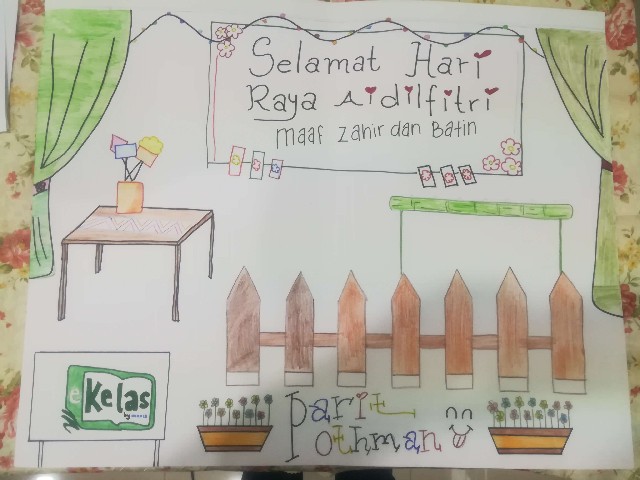 Selamat Hari
Raya Aidilfitri
maaf zahir dan Batin
e Kelas
by maxis
Parit
othman